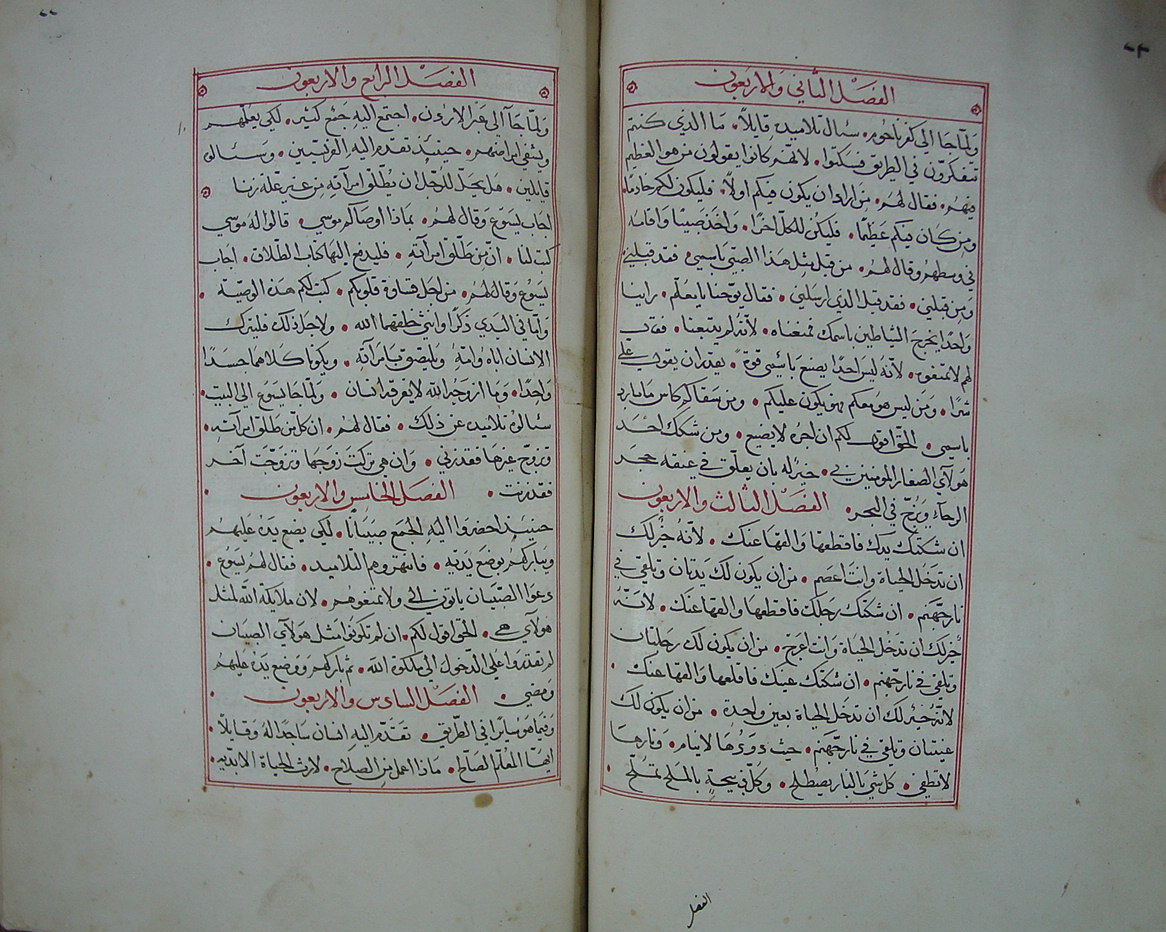 الفصل الثاني والاربعون
ولما جا الي كفرناحوم • سئال تلاميذه قايلاً • ما الذي كنتم
تتفكرون في الطريق فسكتوا • لانهم كانوا يقولون من هو العظيم
منهم • فقال لهم • من اراد ان يكون فيكم اولاً • فليكون لكم خادماً
ومن كان فيكم عظيماً • فليكن للكل اخرًا • واخذ صبيا واقامه
في وسطهم وقال لهم • من قبل مثل هذا الصبي باسمي فقد قبلني
ومن قبلني • فقد قبل الذي ارسلني • فقال يوحنا يا معلم • راينا
واحدًا يخرج الشياطين باسمك فمنعناه • لانه لم يتبعنا • فقال
لهم لا تمنعوه • لانه ليس احدًا يصنع باسمي قوة • يقدر ان يقول علي
شرًا • ومن ليس هو معكم فهو يكون عليكم • ومن سقاكم كاس ما بارد
باسمي • الحق اقول لكم ان اجره لا يضيع • ومن شكك احد
هولآي الصغار المومنين بي • خير له بان يعلق في عنقه حجر
الرحآء ويزج في البحر • الفصل الثالث والاربعون
ان شكتك يدك فاقطعها والقها عنك • لانه خير لك
ان تدخل الحياة وانت اعصم • من ان يكون لك يدتان وتلقي في
نار جهنم • ان شكتك رجلك فاقطعها والقها عنك • لانه
خير لك ان تدخل الحياة وانت اعرج • من ان يكون لك رجلتان
وتلقي في نار جهنم • ان شكتك عينك فاقلعها والقها عنك
لانه خير لك ان تدخل الحياة بعين واحدة • من ان يكون لك
عينتان وتلقي في نار جهنم • حيث دودها لا ينام • ونارها
لا تطفي • كل شي بالنار يصطلح • وكل ذبيحة بالملح تملح
الفصل
الفصل الرابع والاربعون
ولما جآ الي عبر الاردن • اجتمع اليه جمع كثير • لكي يعلمهم
ويشفي امراضهم • حينيذ تقدم اليه الفريسين • وسئالوه
قايلين • هل يحل للرجل ان يطلق امرآته من غير علة زنا
اجاب يسوع وقال لهم • بماذا اوصآكم موسي • قالوا له موسي
كتب لنا • ان من طلق امرآته • فليدفع اليها كتاب الطلاق • اجاب
يسوع وقال لهم • من اجل قساوة قلوبكم • كتب لكم هذه الوصية •
واما في البدي ذكرًا وانثي خلقهما الله • ولاجل ذلك فليترك
الانسان اباه وامه • ويلتصق بامرآته • ويكونا كلاهما جسدًا
واحدًا • وما ازوجه الله لا يفرقه انسان • ولما جا يسوع الي البيت •
سئالوه تلاميذه عن ذلك • فقال لهم • ان كل من طلق امرآته •
وتزوج غيرها فقد زني • وان هي تركت زوجها وتزوجت آخر
فقد زنت • الفصل الخامس والاربعون
حينيذ احضروا اليه الجمع صبيانًا • لكي يضع يده عليهم
ويباركهم بوضع يديه • فانتهروهم التلاميذ • فقال لهم يسوع •
دعوا الصبيان ياتون الي ولا تمنعوهم • لان ملايكة الله لمثل
هولآي هي • الحق اقول لكم • ان لم تكونوا مثل هولآي الصبيان
لم تقدروا علي الدخول الي ملكوة الله • ثم باركهم ووضع يده عليهم
ومضي • الفصل السادس والاربعون
وفيما هو سايرًا في الطريق • تقدم اليه انسان ساجدًا له وقايلاً •
ايها المعلم الصالح • ماذا اعمل من الصلاح • لارث الحياة الابديه •